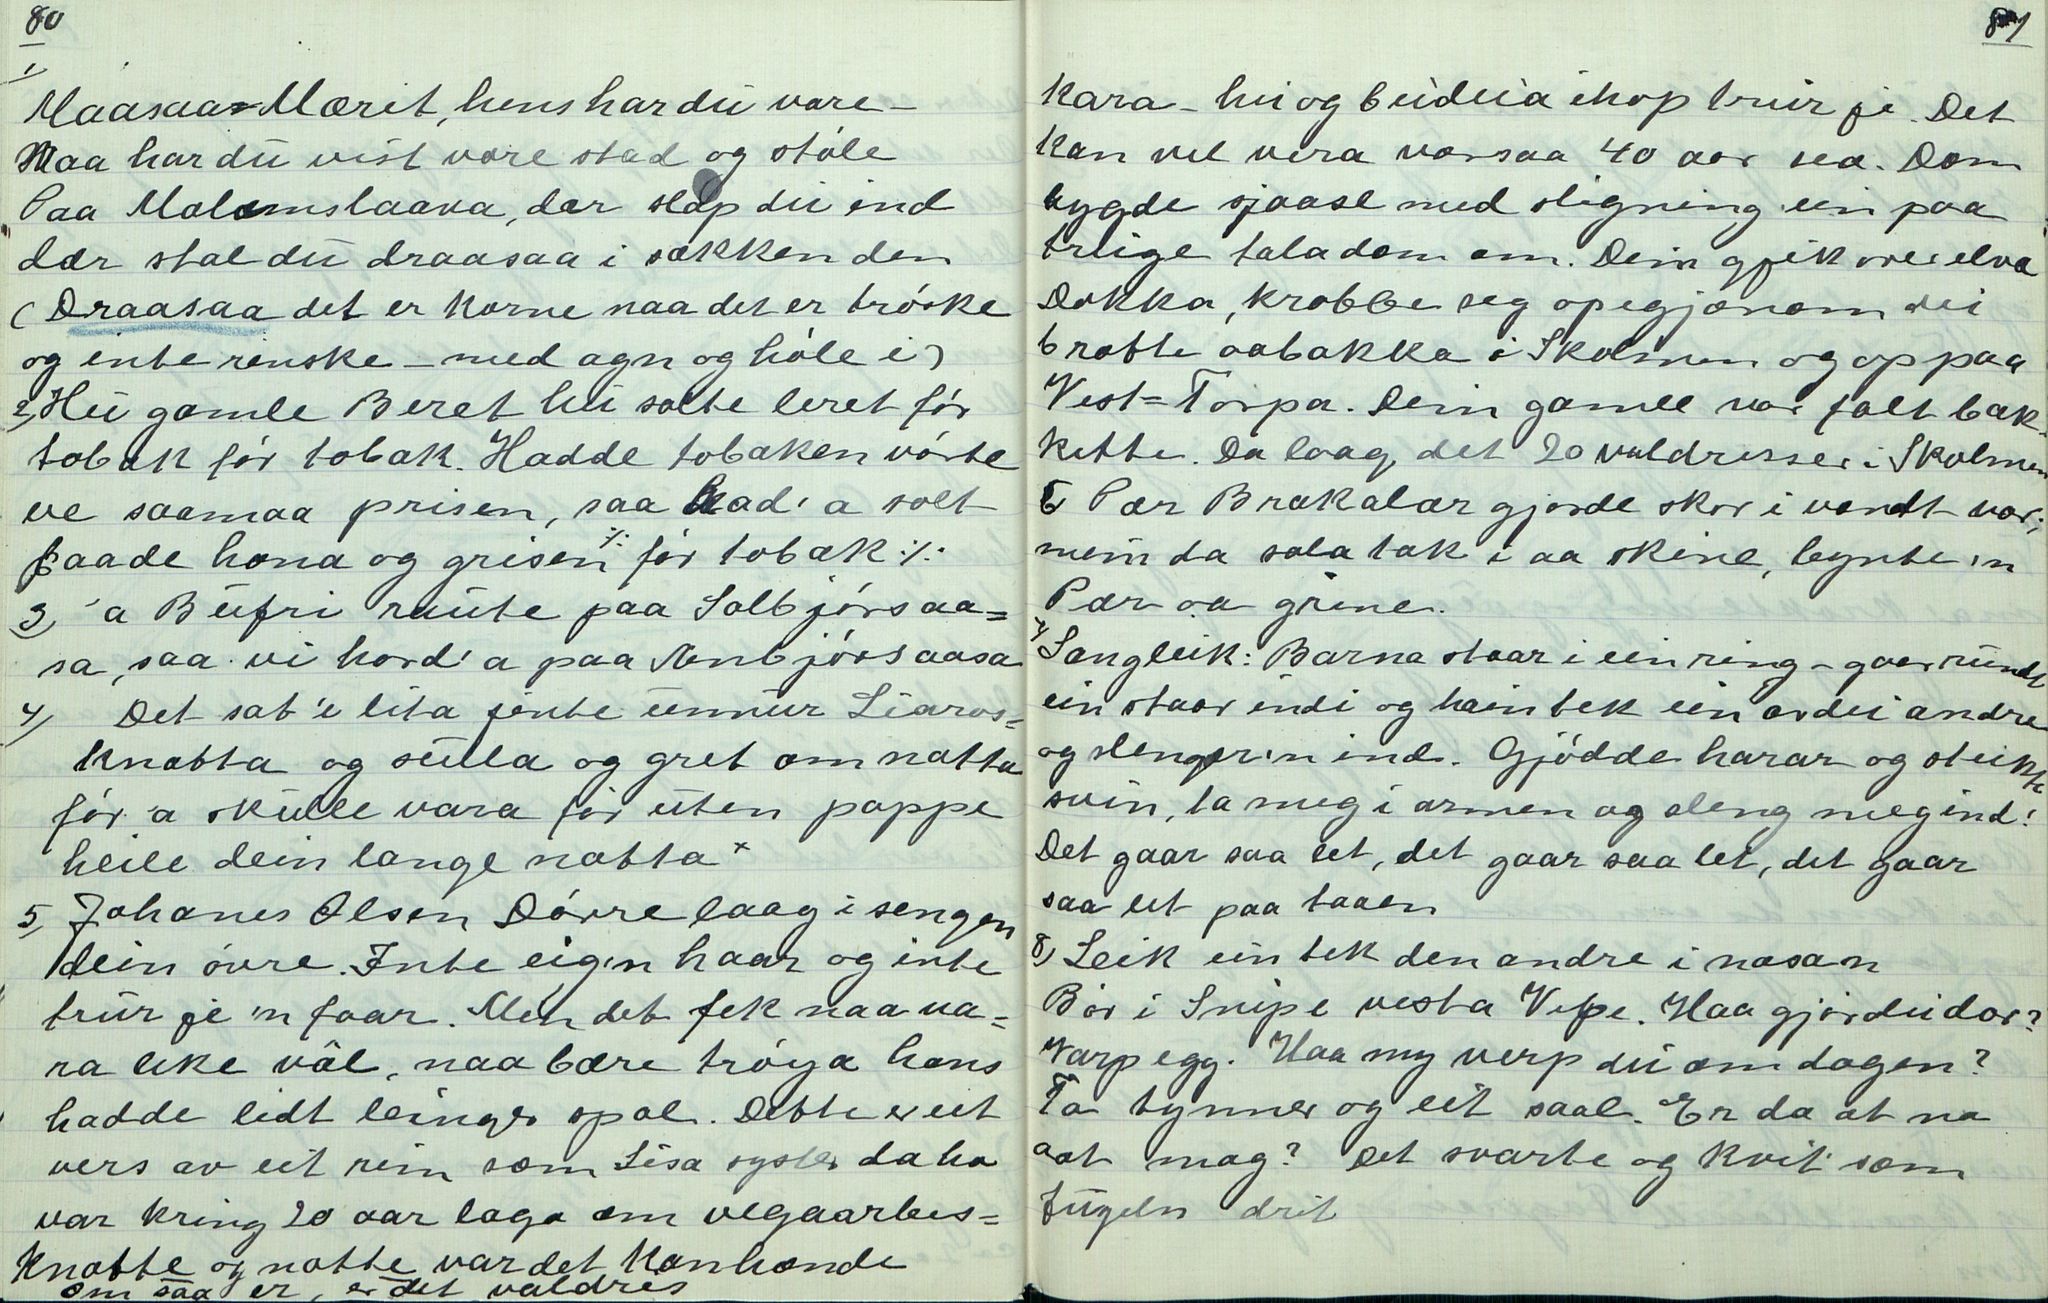 80
1)
Maasaa-Mærit, hens har du vore -
Maa har du vist vore stad og stóle
Paa Molomslaava, der slap du ind
dær stal du draasaa i sækken den
(Draasaa det er korne naa det er tróske
og inte renske - med agn og hóle i)
2) Hu gamle Beret hu solte leret fór
tobak fór tobak. Hadde tobaken vórte
ve saamaa prisen, saa had' a solt
baade hona og grisen :/: fór tobak :/:
3) 'a Bufri raute paa Solbjórsaa=
sa, saa vi hord' a paa Arnbjórsaasa
4) Det sat 'e lita jente unnur Liaros=
knatta og sulla og gret om natta
fór 'a skulle vara fór uten pappe
heile dein lange natta x
5) Johanes Olsen Dórre laag i sengen
dein óvre. Inte eig'n haar og inte
trur je 'n faar. Men det fek naa va=
ra like vâl, naa bære tróya hans
hadde lidt leinger spol. Dette er eit
vers av eit rim som Lisa syster da ho
var kring 20 aar laga om vegaarbeis=
knatte og natte var det kanhænde
om saa er, er det valdris
81
kara - hu og budeia ihop trur je. Det
kan vel vera vorsaa 40 aar sea. Dom
bygde sjaasl med stigning ein paa
trlige tala dom om. Dein gjek over elva
Dokka, krabbe seg opegjønom dei
bratte aabakka i Skolmen og op paa
Vest=Torpa. Dein gamle var fælt bak-
kette. Da laag det 20 valdresser i Skolmen
6 Pær Brækalær gjorde skor i vendt vær;
mein da sola tok i aa skine, bynte 'n
Pær aa grine.
7) Sangleik: Barna staar i ein ring - gaar rundt
ein staar indi og hain tek ein av dei andre
og slenger'n ind. Gjódde harar og steikte
svin, ta meg i armen og sleng meg ind!
Det gaar saa let, det gaar saa let, det gaar
saa let paa taaen
8) Leik ein tek den andre i nasan
Bór i Snipe vesta Vepe. Haa gjór du dær?
Varp egg. Haa my verp du om dagen?
To tynner og eit saal. Er da at na
aat mag? Det svarte og kvit som
fugeln drit